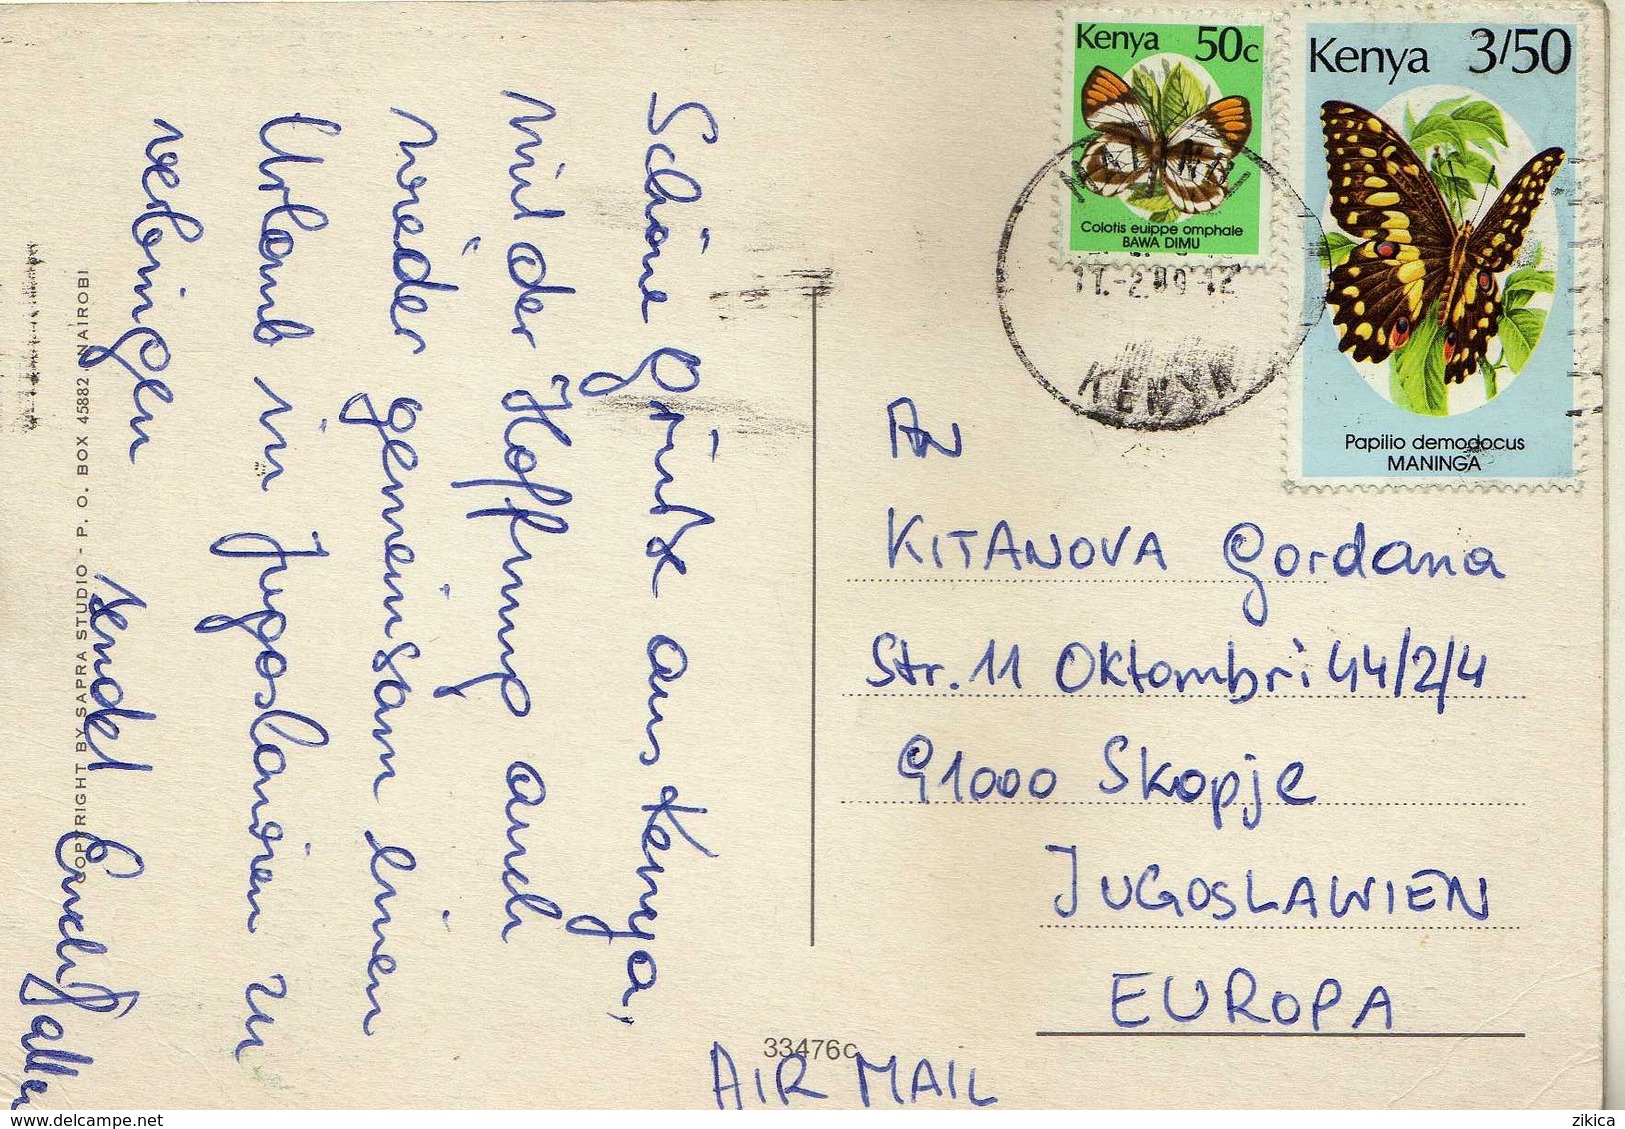 Schöne Grüße aus Kenya,
mit der Hoffnung auch
wieder gemeinsam einen
Urlaub in Jugoslavien zu
verbringen
sendet Euch
COPYRIGHT BY SAPRA STUDIO - P. O. BOX 45882, NAIROBI
Kenya 50c
Colotis euippe omphale
BAWA DIMU
Kenya 3/50
Papilio demodocus
MANINGA
NAIROBI
KENYA
AN
KITANOVA Gordana
Str. 11 Oktombri 44/2/4
91000 Skopje
JUGOSLAWIEN
EUROPA
33476c
AIR MAIL
delcampe.net
zikica